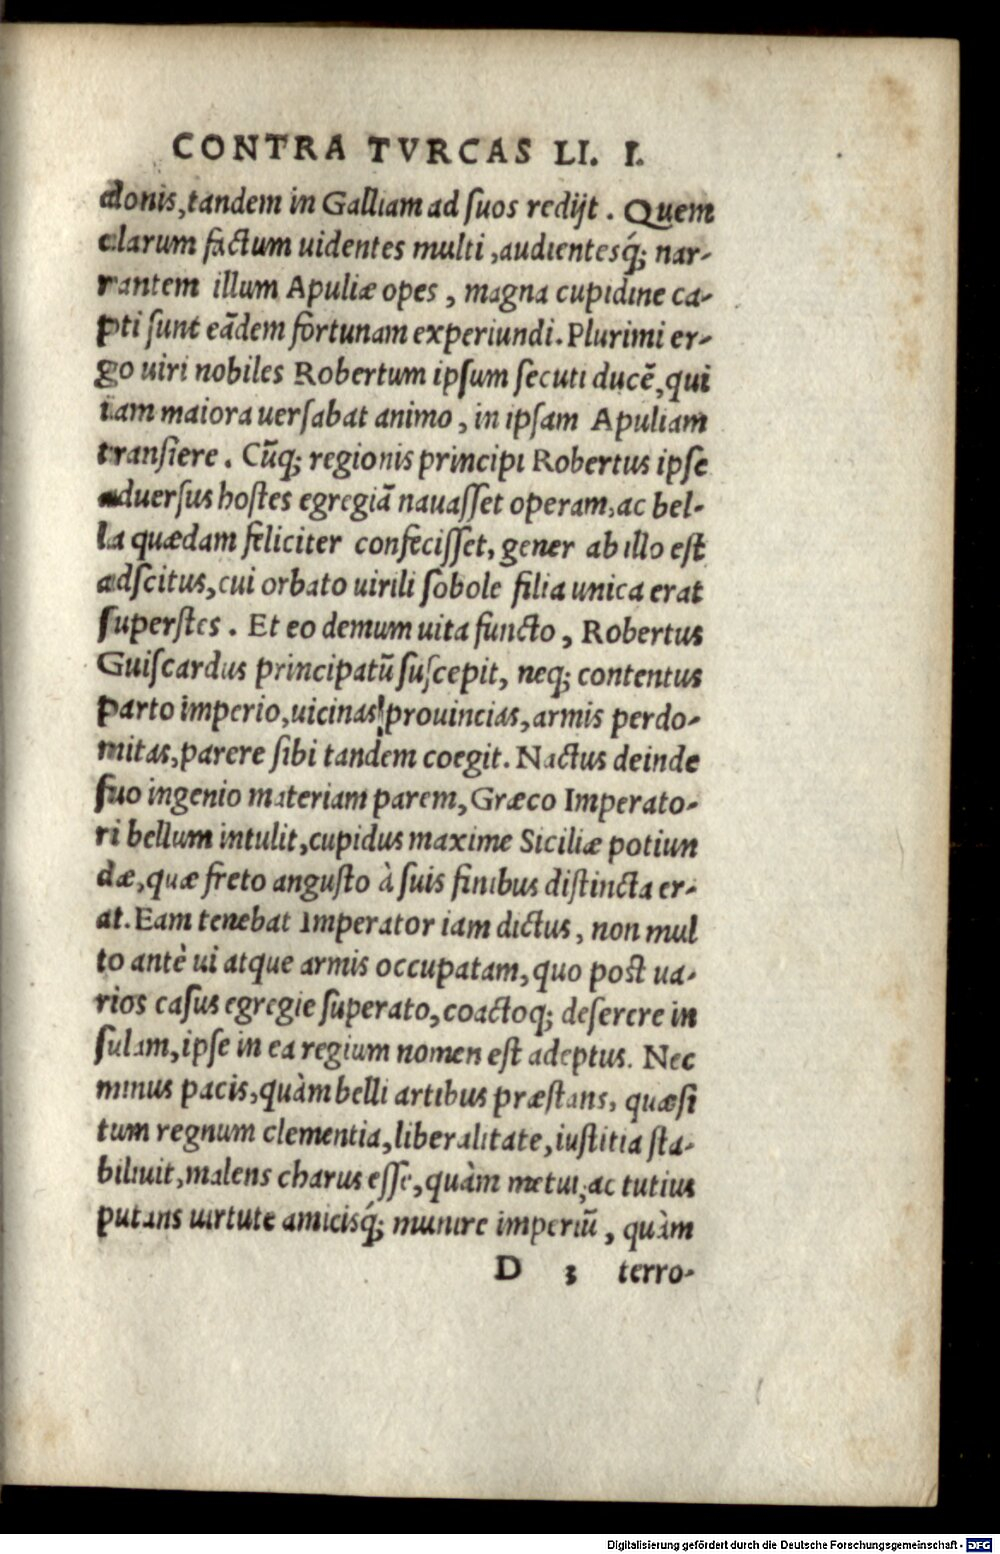 CONTRA TVRCAS LI. I.
donis, tandem in Galliam ad ſuos redijt. Quem
clarum factum uidentes multi, audientesq́; nar-
rantem illum Apuliæ opes, magna cupidine ca-
pti ſunt eādem fortunam experiundi. Plurimi er-
go uiri nobiles Robertum ipſum ſecuti ducē, qui
iam maiora uerſabat animo, in ipſam Apuliam
tranſiere. Cūq; regionis principi Robertus ipſe
aduerſus hoſtes egregiā nauaſſet operam, ac bel-
la quædam feliciter confeciſſet, gener ab illo eſt
adſcitus, cui orbato uirili ſobole filia unica erat
ſuperſtes. Et eo demum uita functo, Robertus
Guiſcardus principatū ſuſcepit, neq; contentus
parto imperio, uicinas prouincias, armis perdo-
mitas, parere ſibi tandem coegit. Nactus deinde
ſuo ingenio materiam parem, Græco Imperato-
ri bellum intulit, cupidus maxime Siciliæ potiun
dæ, quæ freto anguſto à ſuis finibus diſtincta er-
at. Eam tenebat Imperator iam dictus, non mul
to antè ui atque armis occupatam, quo poſt ua-
rios caſus egregie ſuperato, coactoq; deſerere in
ſulam, ipſe in ea regium nomen eſt adeptus. Nec
minus pacis, quàm belli artibus præſtans, quæſi
tum regnum clementia, liberalitate, iuſtitia ſta-
biliuit, malens charus eſſe, quàm metui, ac tutius
putans uirtute amicisq́; munire imperiū, quàm
D 3 terro-
Digitalisierung gefördert durch die Deutsche Forschungsgemeinschaft - DFG